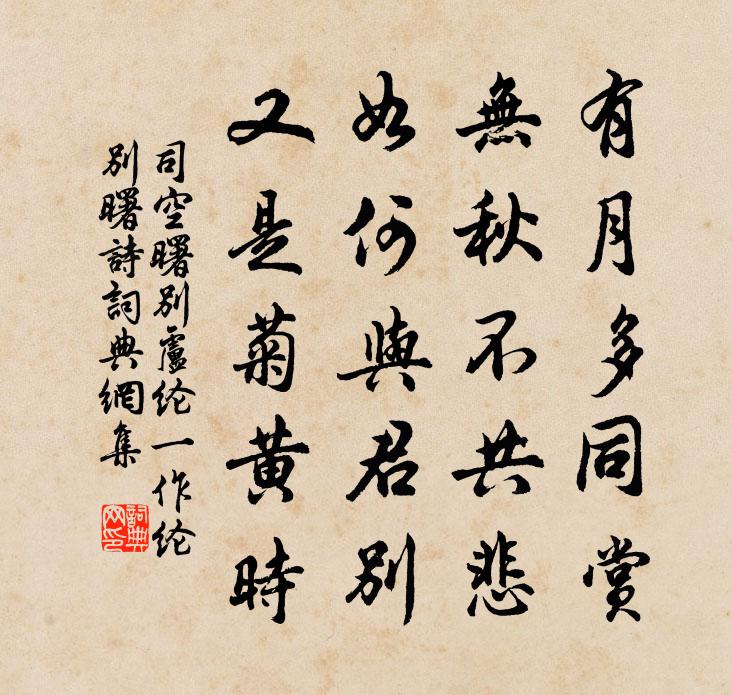 有月多同賞
無秋不共悲
如何與君別
又是菊黃時
司空曙別盧纶一作纶
別曙詩詞典網集
詞典
网印